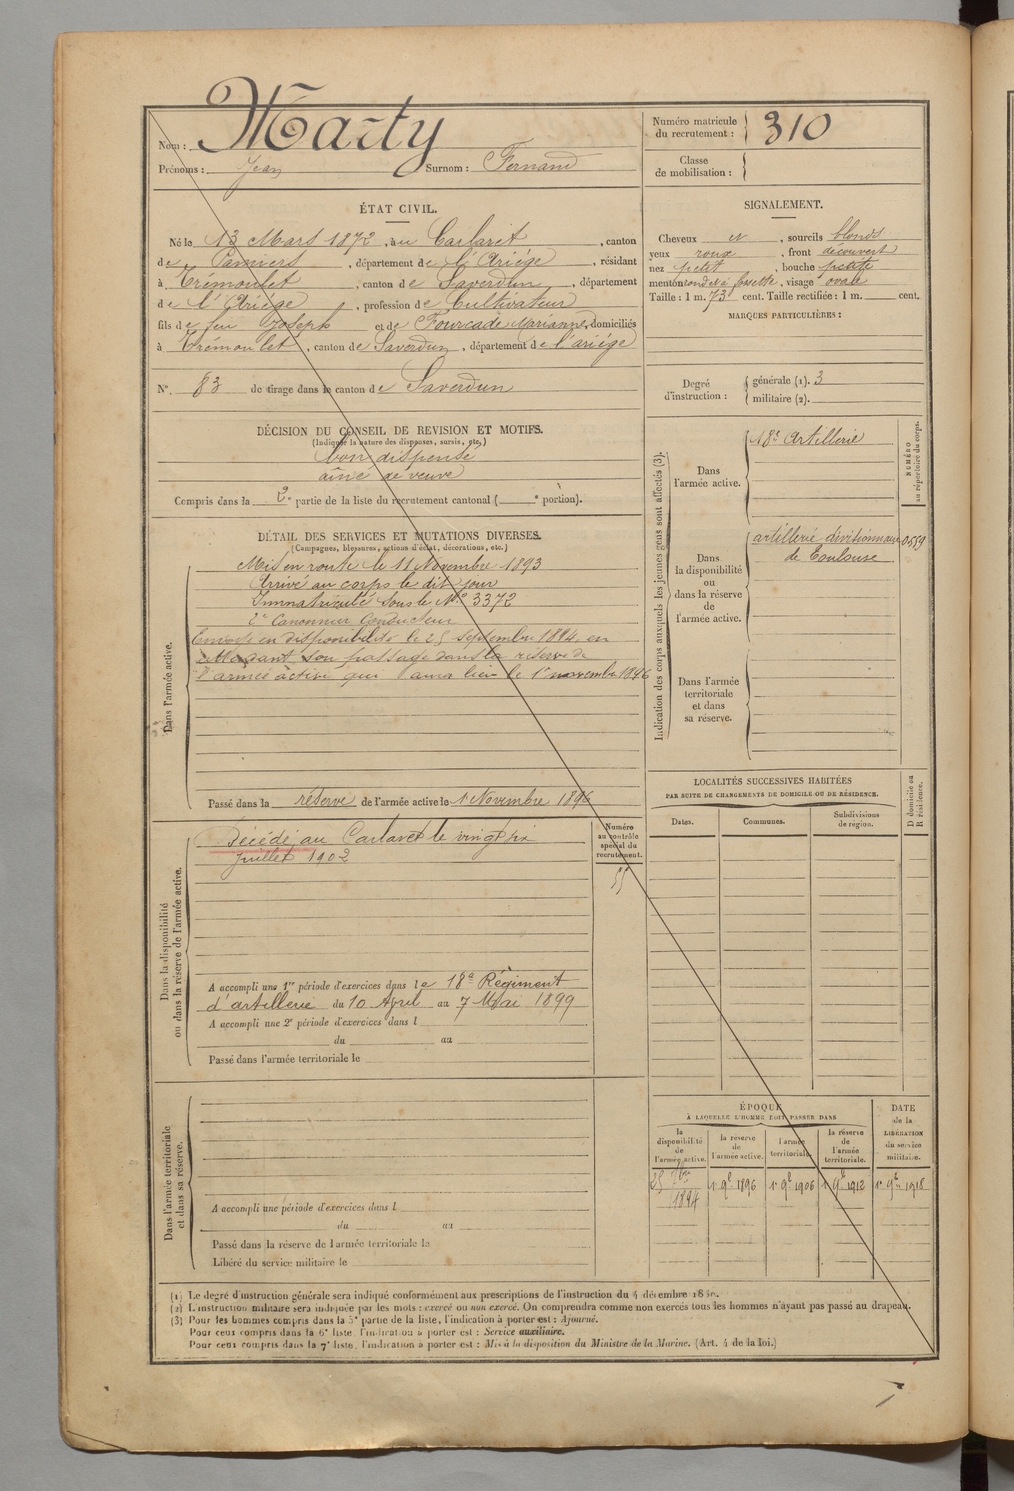 Nom : Marty
Prénoms : Jean Surnom : Fernand
Numéro matricule du recrutement : 310
Classe de mobilisation :
ÉTAT CIVIL.
Né le 13 Mars 1872, au Carlaret, canton
de Pamiers, département de l'Ariège, résidant
à Trémoulet, canton de Saverdun, département
de l'Ariège, profession de Cultivateur
fils de feu Joseph et de Fourcade Marianne, domiciliés
à Trémoulet, canton de Saverdun, département de l'ariège
N°. 83 de tirage dans le canton de Saverdun
SIGNALEMENT.
Cheveux N, sourcils blonds
yeux roux, front découvert
nez petit, bouche petite
menton rond et à fossette, visage ovale
Taille : 1 m. 73 cent. Taille rectifiée : 1 m. cent.
MARQUES PARTICULIÈRES :
Degré d'instruction : générale (1). 3
militaire (2).
DÉCISION DU CONSEIL DE REVISION ET MOTIFS.
(Indiquer la nature des dispenses, sursis, etc.)
bon dispensé
aîné de veuve
Compris dans la 2e partie de la liste du recrutement cantonal ( e portion).
DÉTAIL DES SERVICES ET MUTATIONS DIVERSES.
(Campagnes, blessures, actions d'éclat, décorations, etc.)
Dans l'armée active.
Mis en route le 11 Novembre 1893
Arrivé au corps le dit jour
Immatriculé sous le N° 3372
2e Canonnier Conducteur
Envoyé en disponibilité le 25 septembre 1894 en
attendant son passage dans la réserve de
l'armée active qui aura lieu le 1er novembre 1896
Passé dans la réserve de l'armée active le 1 Novembre 1896
Indication des corps auxquels les jeunes gens sont affectés (3).
NUMÉRO au répertoire du corps.
Dans l'armée active.
18e Artillerie
Dans la disponibilité ou dans la réserve de l'armée active.
artillerie divisionnaire 0559
de Toulouse
Dans l'armée territoriale et dans sa réserve.
Dans la disponibilité ou dans la réserve de l'armée active.
Décédé au Carlaret le vingt six
juillet 1902
Numéro au contrôle spécial du recrutement.
55
A accompli une 1re période d'exercices dans le 18e Régiment
d'artillerie du 10 April au 7 Mai 1899
A accompli une 2e période d'exercices dans l
du au
Passé dans l'armée territoriale le
LOCALITÉS SUCCESSIVES HABITÉES
PAR SUITE DE CHANGEMENTS DE DOMICILE OU DE RÉSIDENCE.
Dates. Communes. Subdivisions de région. D domicile ou R résidence.
Dans l'armée territoriale et dans sa réserve.
A accompli une période d'exercices dans l
du au
Passé dans la réserve de l'armée territoriale le
Libéré du service militaire le
ÉPOQUE
À LAQUELLE L'HOMME DOIT PASSER DANS
la disponibilité de l'armée active. la réserve de l'armée active. l'armée territoriale. la réserve de l'armée territoriale.
DATE de la LIBÉRATION du service militaire.
25 7bre 1894 1r 9b 1896 1r 9b 1906 1r 9b 1912 1r 9b 1918
(1) Le degré d'instruction générale sera indiqué conformément aux prescriptions de l'instruction du 4 décembre
(2) L'instruction militaire sera indiquée par les mots : exercé ou non exercé. On comprendra comme non exercés tous les hommes n'ayant pas passé au drapeau.
(3) Pour les hommes compris dans la 5e partie de la liste, l'indication à porter est : Ajourné.
Pour ceux compris dans la 6e liste, l'indication à porter est : Service auxiliaire.
Pour ceux compris dans la 7e liste, l'indication à porter est : Mis à la disposition du Ministre de la Marine. (Art. 4 de la loi.)